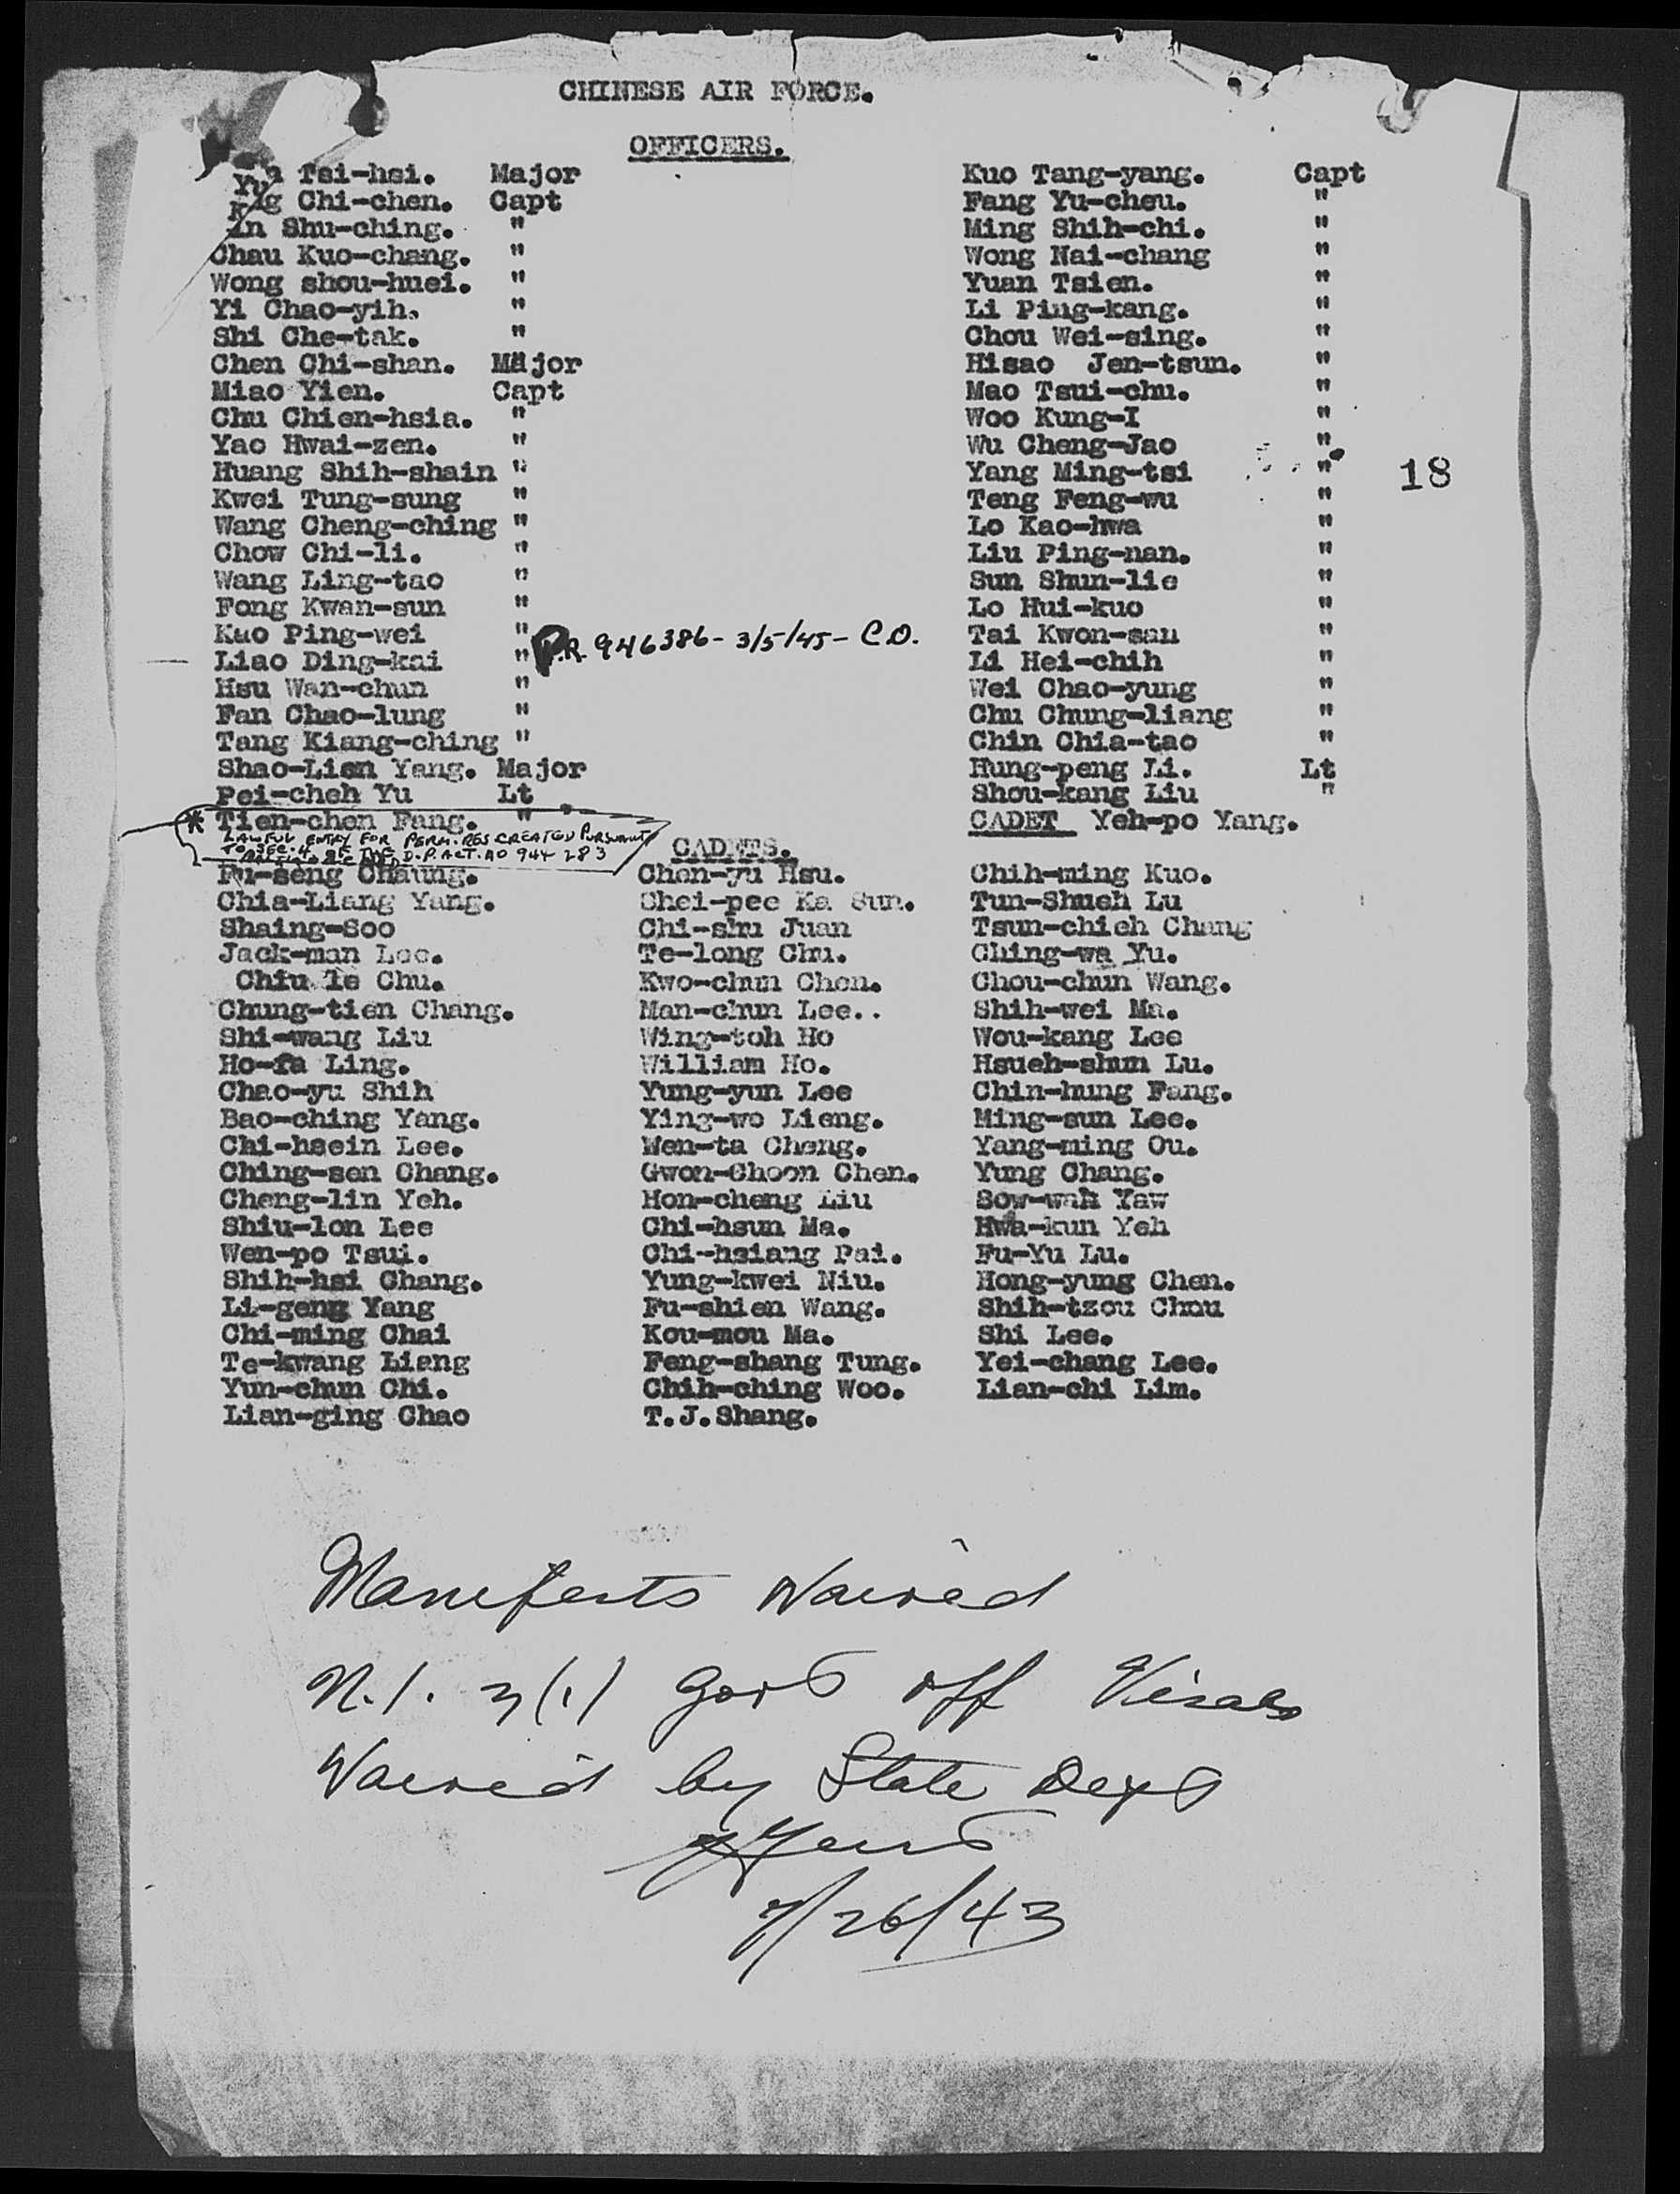 CHINESE AIR FORCE.
OFFICERS.
Tsi-hsi. Major
Chi-chen. Capt
Shu-ching. "
Chau Kuo-chang. "
Wong shou-huei. "
Yi Chao-yih. "
Shi Che-tak. "
Chen Chi-shan. Major
Miao Yien. Capt
Chu Chien-hsia. "
Yao Hwai-zen. "
Huang Shih-shain "
Kwei Tung-sung "
Wang Cheng-ching "
Chow Chi-li. "
Wang Ling-tao "
Fong Kwan-sun "
Kuo Ping-wei "
Liao Ding-kai " P.R. 946386 - 3/5/45 - C.O.
Hsu Wan-chun "
Fan Chao-lung "
Tang Kiang-ching "
Shao-Lien Yang. Major
Pei-cheh Yu Lt
* Tien-chen Fang. "
LAWFUL ENTRY FOR PERM. RES CREATED PURSUANT
TO SEC. 4 OF THE D.P. ACT. AO 944 283
Kuo Tang-yang. Capt
Fang Yu-cheu. "
Ming Shih-chi. "
Wong Nai-chang "
Yuan Tsien. "
Li Ping-kang. "
Chou Wei-sing. "
Hisao Jen-tsun. "
Mao Tsui-chu. "
Woo Kung-I "
Wu Cheng-Jao "
Yang Ming-tsi "
18
Teng Feng-wu "
Lo Kao-hwa "
Liu Ping-nan. "
Sun Shun-lie "
Lo Hui-kuo "
Tai Kwon-san "
Li Hei-chih "
Wei Chao-yung "
Chu Chung-liang "
Chin Chia-tao "
Hung-peng Li. Lt
Shou-kang Liu "
CADET Yeh-po Yang.
CADETS.
Fu-seng Chaung.
Chia-Liang Yang.
Shaing-Soo
Jack-man Lee.
Chiu le Chu.
Chung-tien Chang.
Shi-wang Liu
Ho-fa Ling.
Chao-yu Shih
Bao-ching Yang.
Chi-hsein Lee.
Ching-sen Chang.
Cheng-lin Yeh.
Shiu-lon Lee
Wen-po Tsui.
Shih-hsi Chang.
Li-geng Yang
Chi-ming Chai
Te-kwang Liang
Yun-chun Chi.
Lian-ging Chao
Chen-yu Hsu.
Shei-pee Ka Sun.
Chi-shu Juan
Te-long Chu.
Kwo-chun Chen.
Man-chun Lee..
Wing-toh Ho
William Ho.
Yung-yun Lee
Ying-wo Lieng.
Wen-ta Cheng.
Gwon-Choon Chen.
Hon-cheng Liu
Chi-hsun Ma.
Chi-hsiang Pai.
Yung-kwei Niu.
Fu-shien Wang.
Kou-mou Ma.
Feng-shang Tung.
Chih-ching Woo.
T.J.Shang.
Chih-ming Kuo.
Tun-Shueh Lu
Tsun-chieh Chang
Ching-wa Yu.
Chou-chun Wang.
Shih-wei Ma.
Wou-kang Lee
Hsueh-shun Lu.
Chin-hung Fang.
Ming-sun Lee.
Yang-ming Ou.
Yung Chang.
Sow-wah Yaw
Hwa-kun Yeh
Fu-Yu Lu.
Hong-yung Chen.
Shih-tzou Chou
Shi Lee.
Yei-chang Lee.
Lian-chi Lim.
Manifests Waived
N.I. 3(1) Govt off Visas
Waived by State Dept
7/26/43